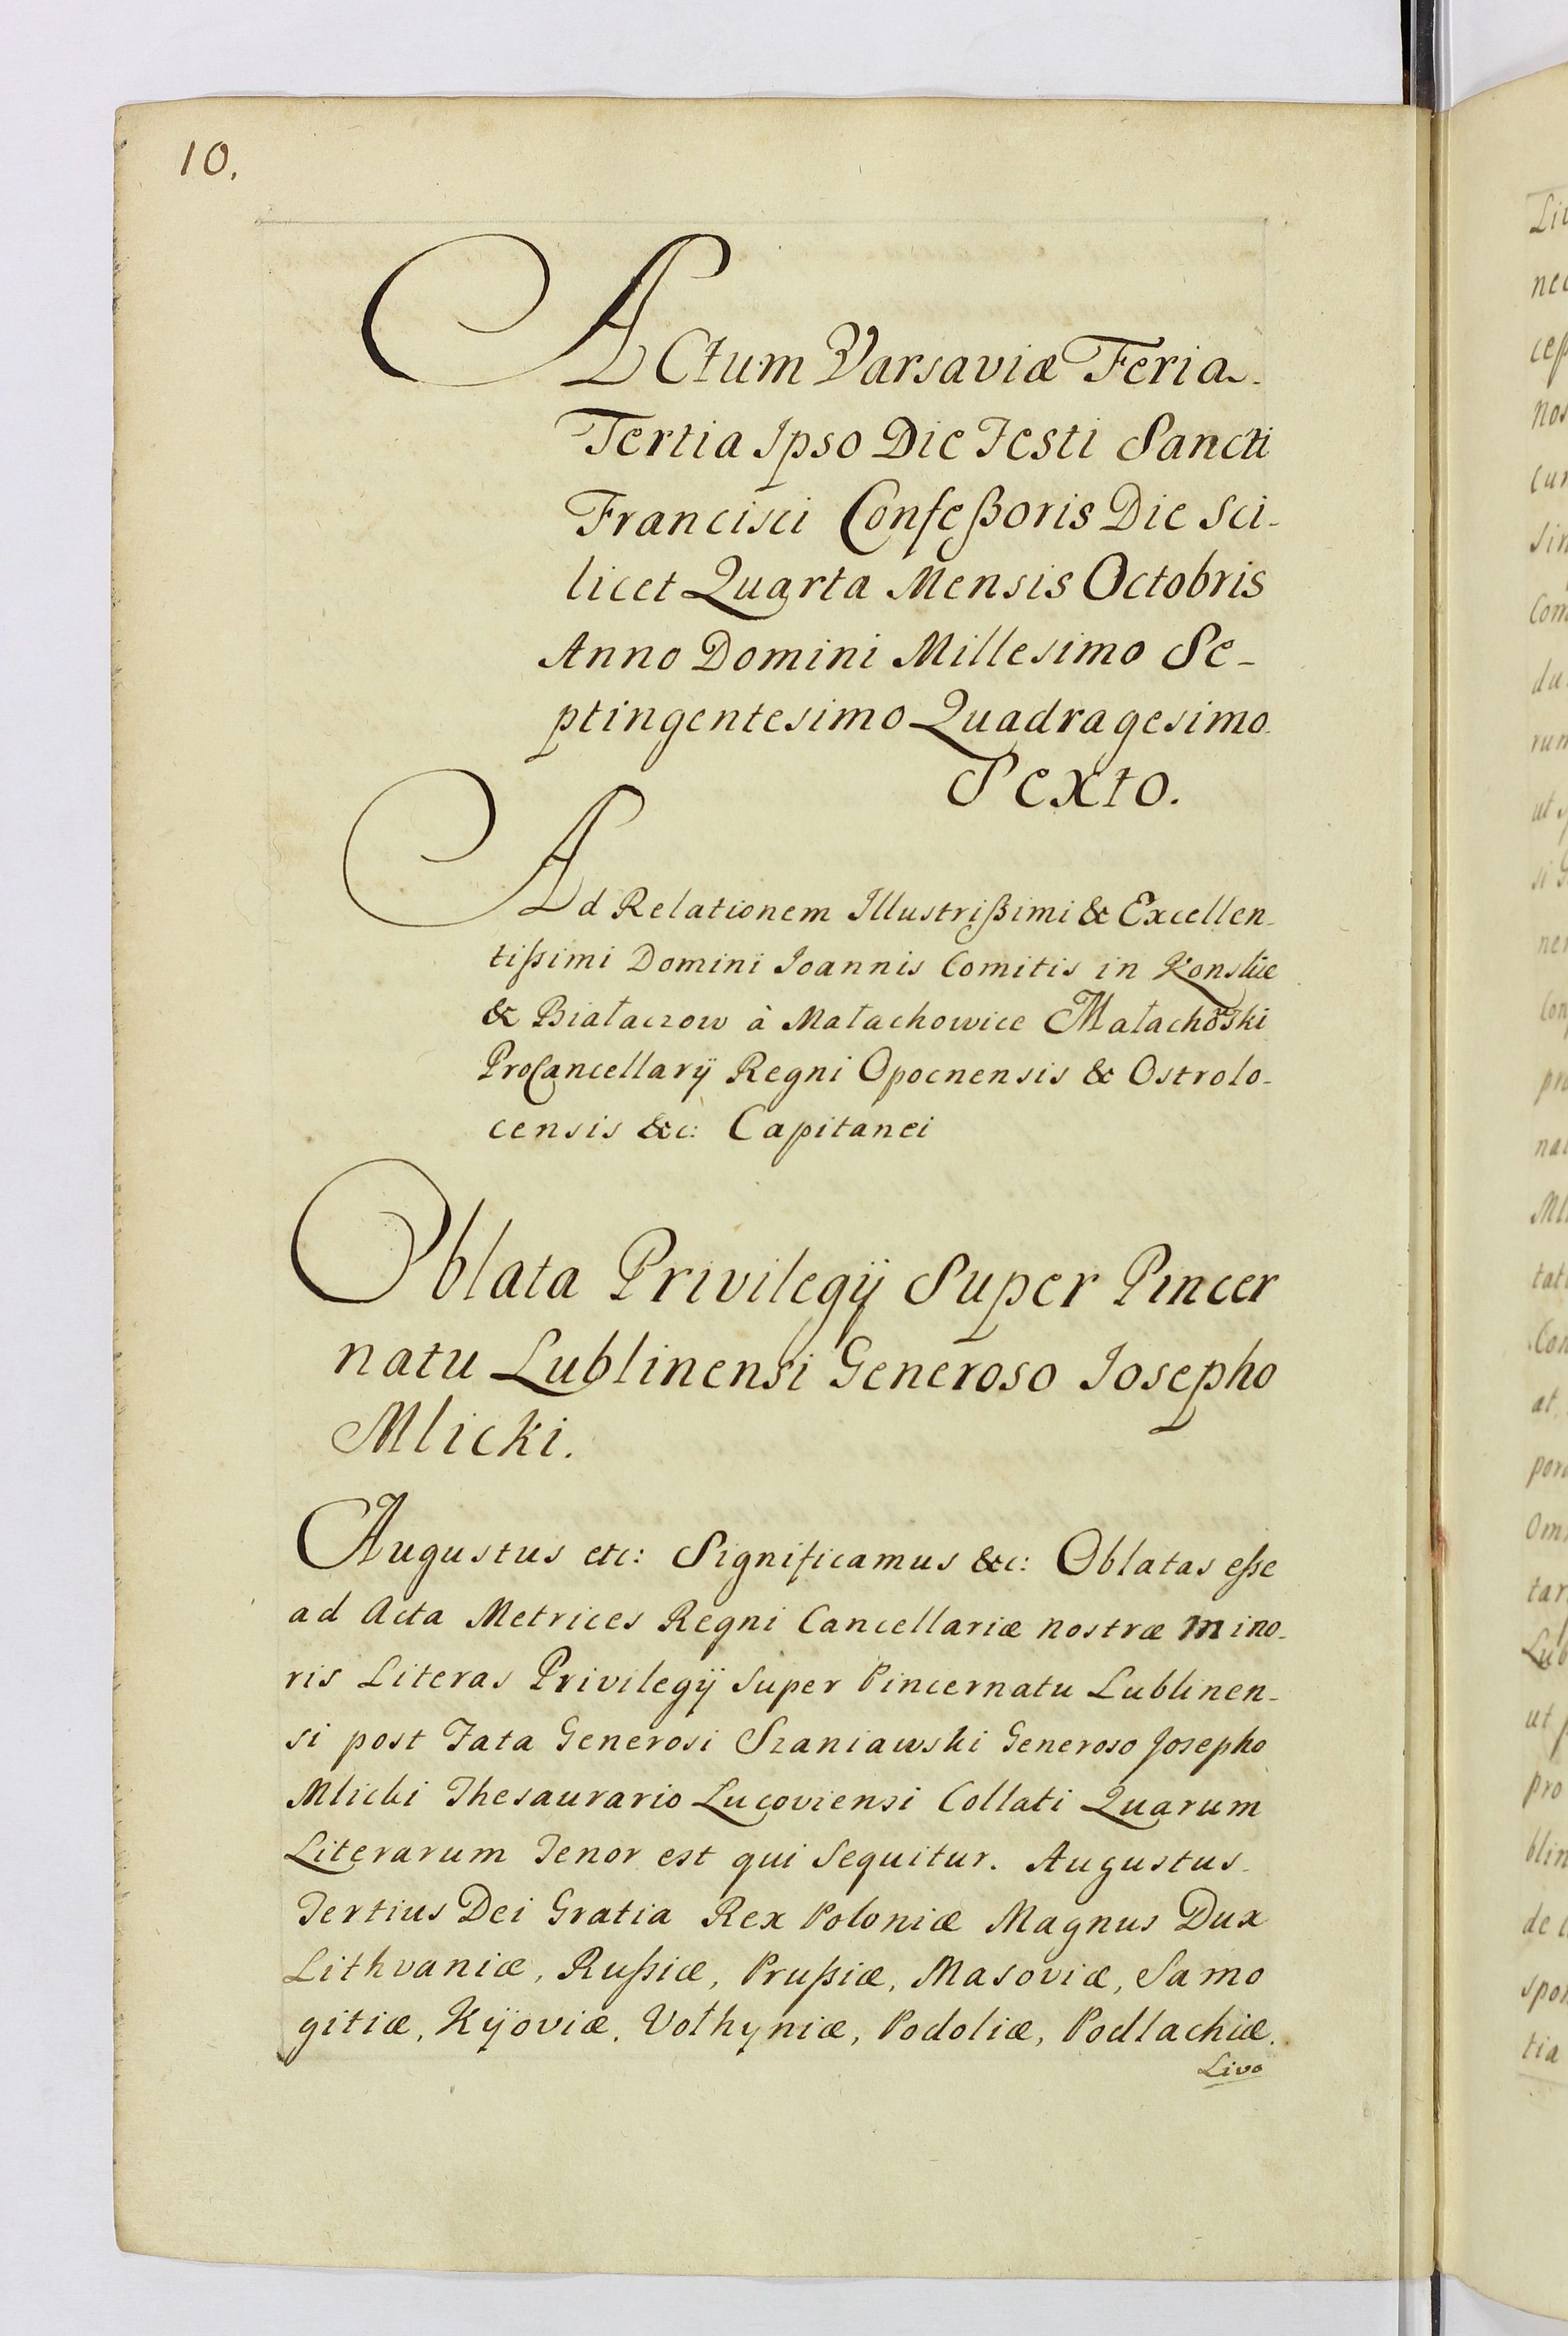 10.
ACtum Varsaviæ Feria
Tertia Ipso Die Festi Sancti
Francisci Confeßoris Die Sci-
licet Quarta Mensis Octobris
Anno Domini Millesimo Se-
ptingentesimo Quadragesimo
Sexto.
Ad Relationem Illustrißimi & Excellen-
tißimi Domini Ioannis Comitis in Konskie
& Białaczow à Małachowice Małachoski
ProCancellarij Regni Opocnensis & Ostrolo-
censis &c: Capitanei
Oblata Privilegij Super Pincer
natu Lublinensi Generoso Iosepho
Mlicki.
Augustus etc: Significamus &c: Oblatas eße
ad Acta Metrices Regni Cancellariæ nostræ mino-
ris Literas Privilegij super Pincernatu Lublinen-
si post Fata Generosi Szaniawski Generoso Josepho
Mlicki Thesaurario Lucoviensi Collati Quarum
Literarum Tenor est qui Sequitur. Augustus
Tertius Dei Gratia Rex Poloniæ Magnus Dux
Lithvaniæ, Rußiæ, Prußiæ, Masoviæ, Samo
gitiæ, Kijoviæ, Vołhyniæ, Podoliæ, Podlachiæ,
Livo